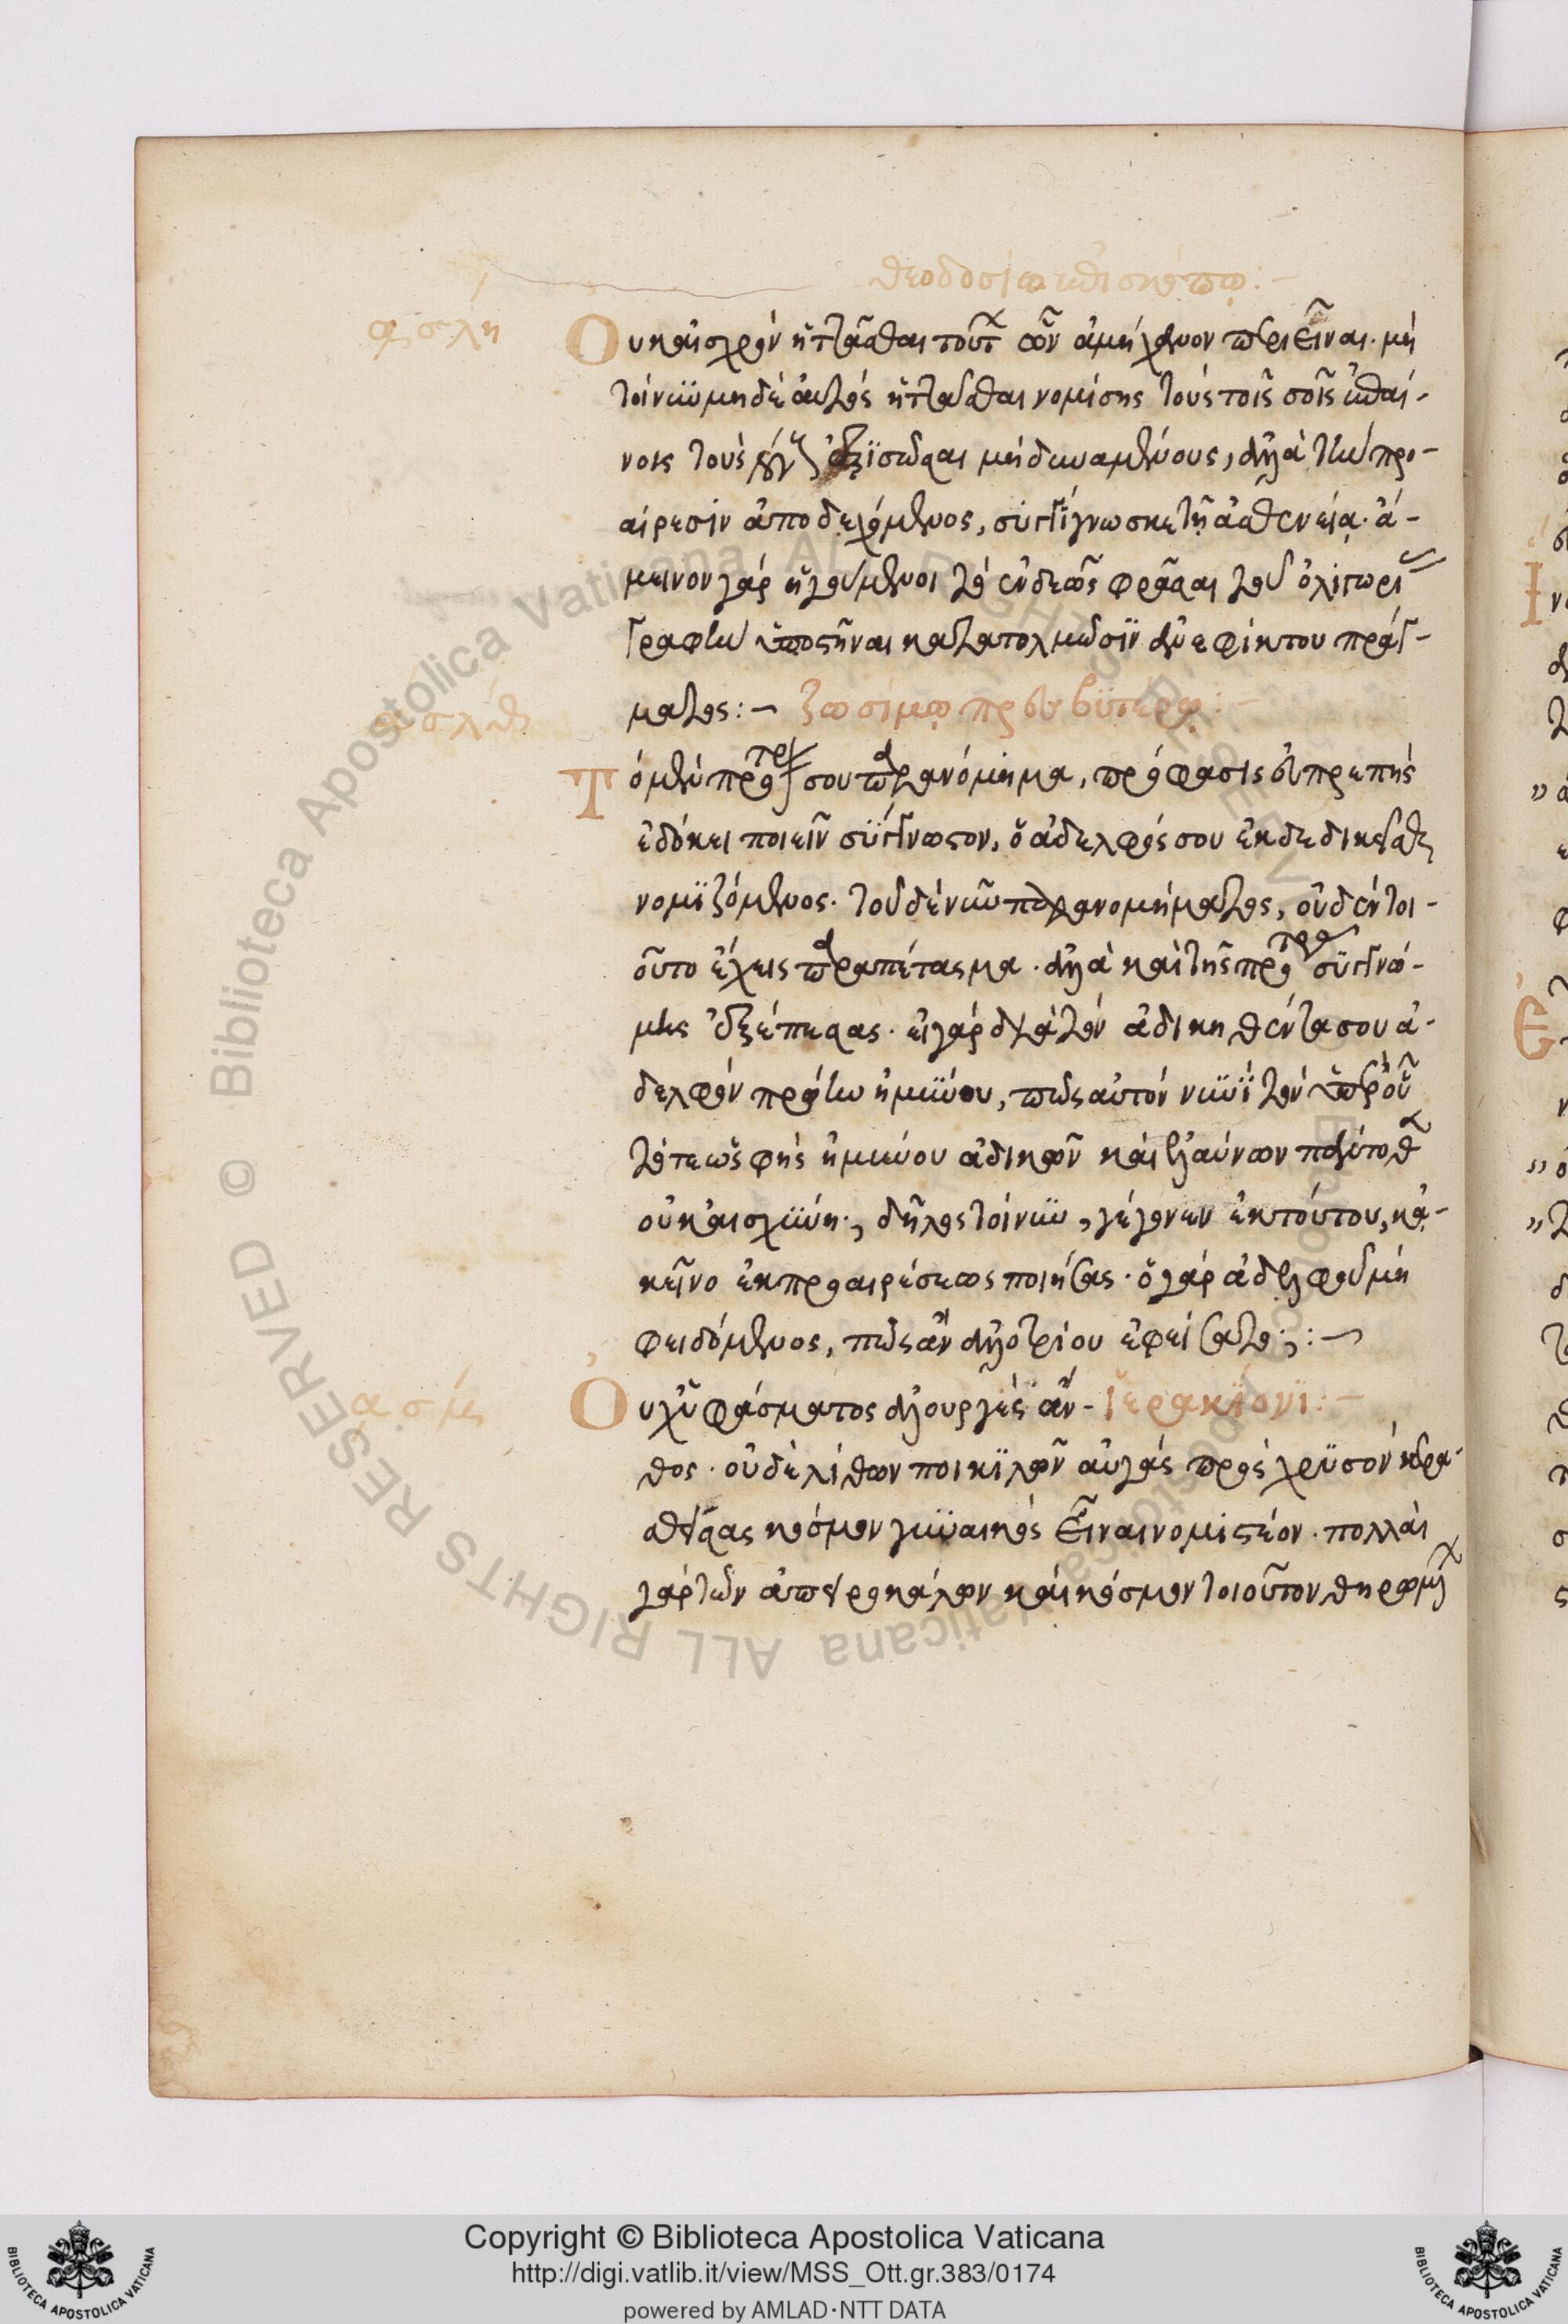 θεοδοσίω ἐπισκόπω:-
͵ασλη
Ουκ αἰσχρὸν ἡττᾶσθαι τούτων ὧν ἀμήχανον περιεῖναι. μὴ
τοίνυν μηδὲ αὐτὸς ἡττᾶσθαι νομίσης τοὺς τοῖς σοῖς ἐπαί-
νοις τοὺς λόγους ἐξισῶσαι μὴ δυναμένους, ἀλλὰ τὴν προ-
αίρεσιν ἀποδεχόμενος, συγγίγνωσκε τῆ ἀσθενεία. ἄ-
μεινον γὰρ ἡγούμενοι τὸ ἐνδεῶς φράσαι τοῦ ὀλιγωρίας
γραφὴν ὑποστῆναι κατατολμῶσιν ἀνεφίκτου πράγ-
ματος:- ζωσίμω πρεσβυτέρω:-
͵ασλθ
Τὸ μὲν πρότερόν σου παρανόμημα, πρόφασις εὐπρεπὴς
ἐδόκει ποιεῖν σύγγνωστον, ὁ ἀδελφός σου ἐκδεδικεῖσθαι
νομιζόμενος. τοῦ δὲ νῦν παρανομήματος, οὐδὲν τοι-
οῦτο ἔχεις παραπέτασμα. ἀλλὰ καὶ τῆς προτέρας συγγνώ-
μης ἐξέπεσας. εἰ γὰρ διὰ τὸν ἀδικηθέντα σου ἀ-
δελφὸν πράττειν ἠμύνου, πῶς αὐτὸν νυνὶ τὸν ὑπὲρ οὗ
τότε ὡς φὴς ἠμύνου ἀδικῶν καὶ ἐλαύνων πολύποθα
οὐκ αἰσχύνη·, δῆλος τοίνυν, γέγονεν ἐκ τούτου, κἀ-
κεῖνο ἐκ προαιρέσεως ποιήσας. ὁ γὰρ ἀδελφοῦ μὴ
φειδόμενος, πῶς ἂν ἀλλοτρίου ἐφείσατο·, :-
͵ασμ
Οὐχ ὑφάσματος ἁλουργὲς ἄν- ἱερακίονι:-
θος. οὐδὲ λίθων ποικίλων αὐγὰς πρὸς χρυσὸν κερα-
σθείσας κόσμον γυναικὸς εἶναι νομιστέον. πολλαὶ
γὰρ τῶν ἀπειροκάλων καὶ κόσμον τοιοῦτον θηρώμεναι
Copyright © Biblioteca Apostolica Vaticana
http://digi.vatlib.it/view/MSS_Ott.gr.383/0174
powered by AMLAD·NTT DATA
BIBLIOTECA APOSTOLICA VATICANA
BIBLIOTECA APOSTOLICA VATICANA
© Biblioteca Apostolica Vaticana ALL RIGHTS RESERVED